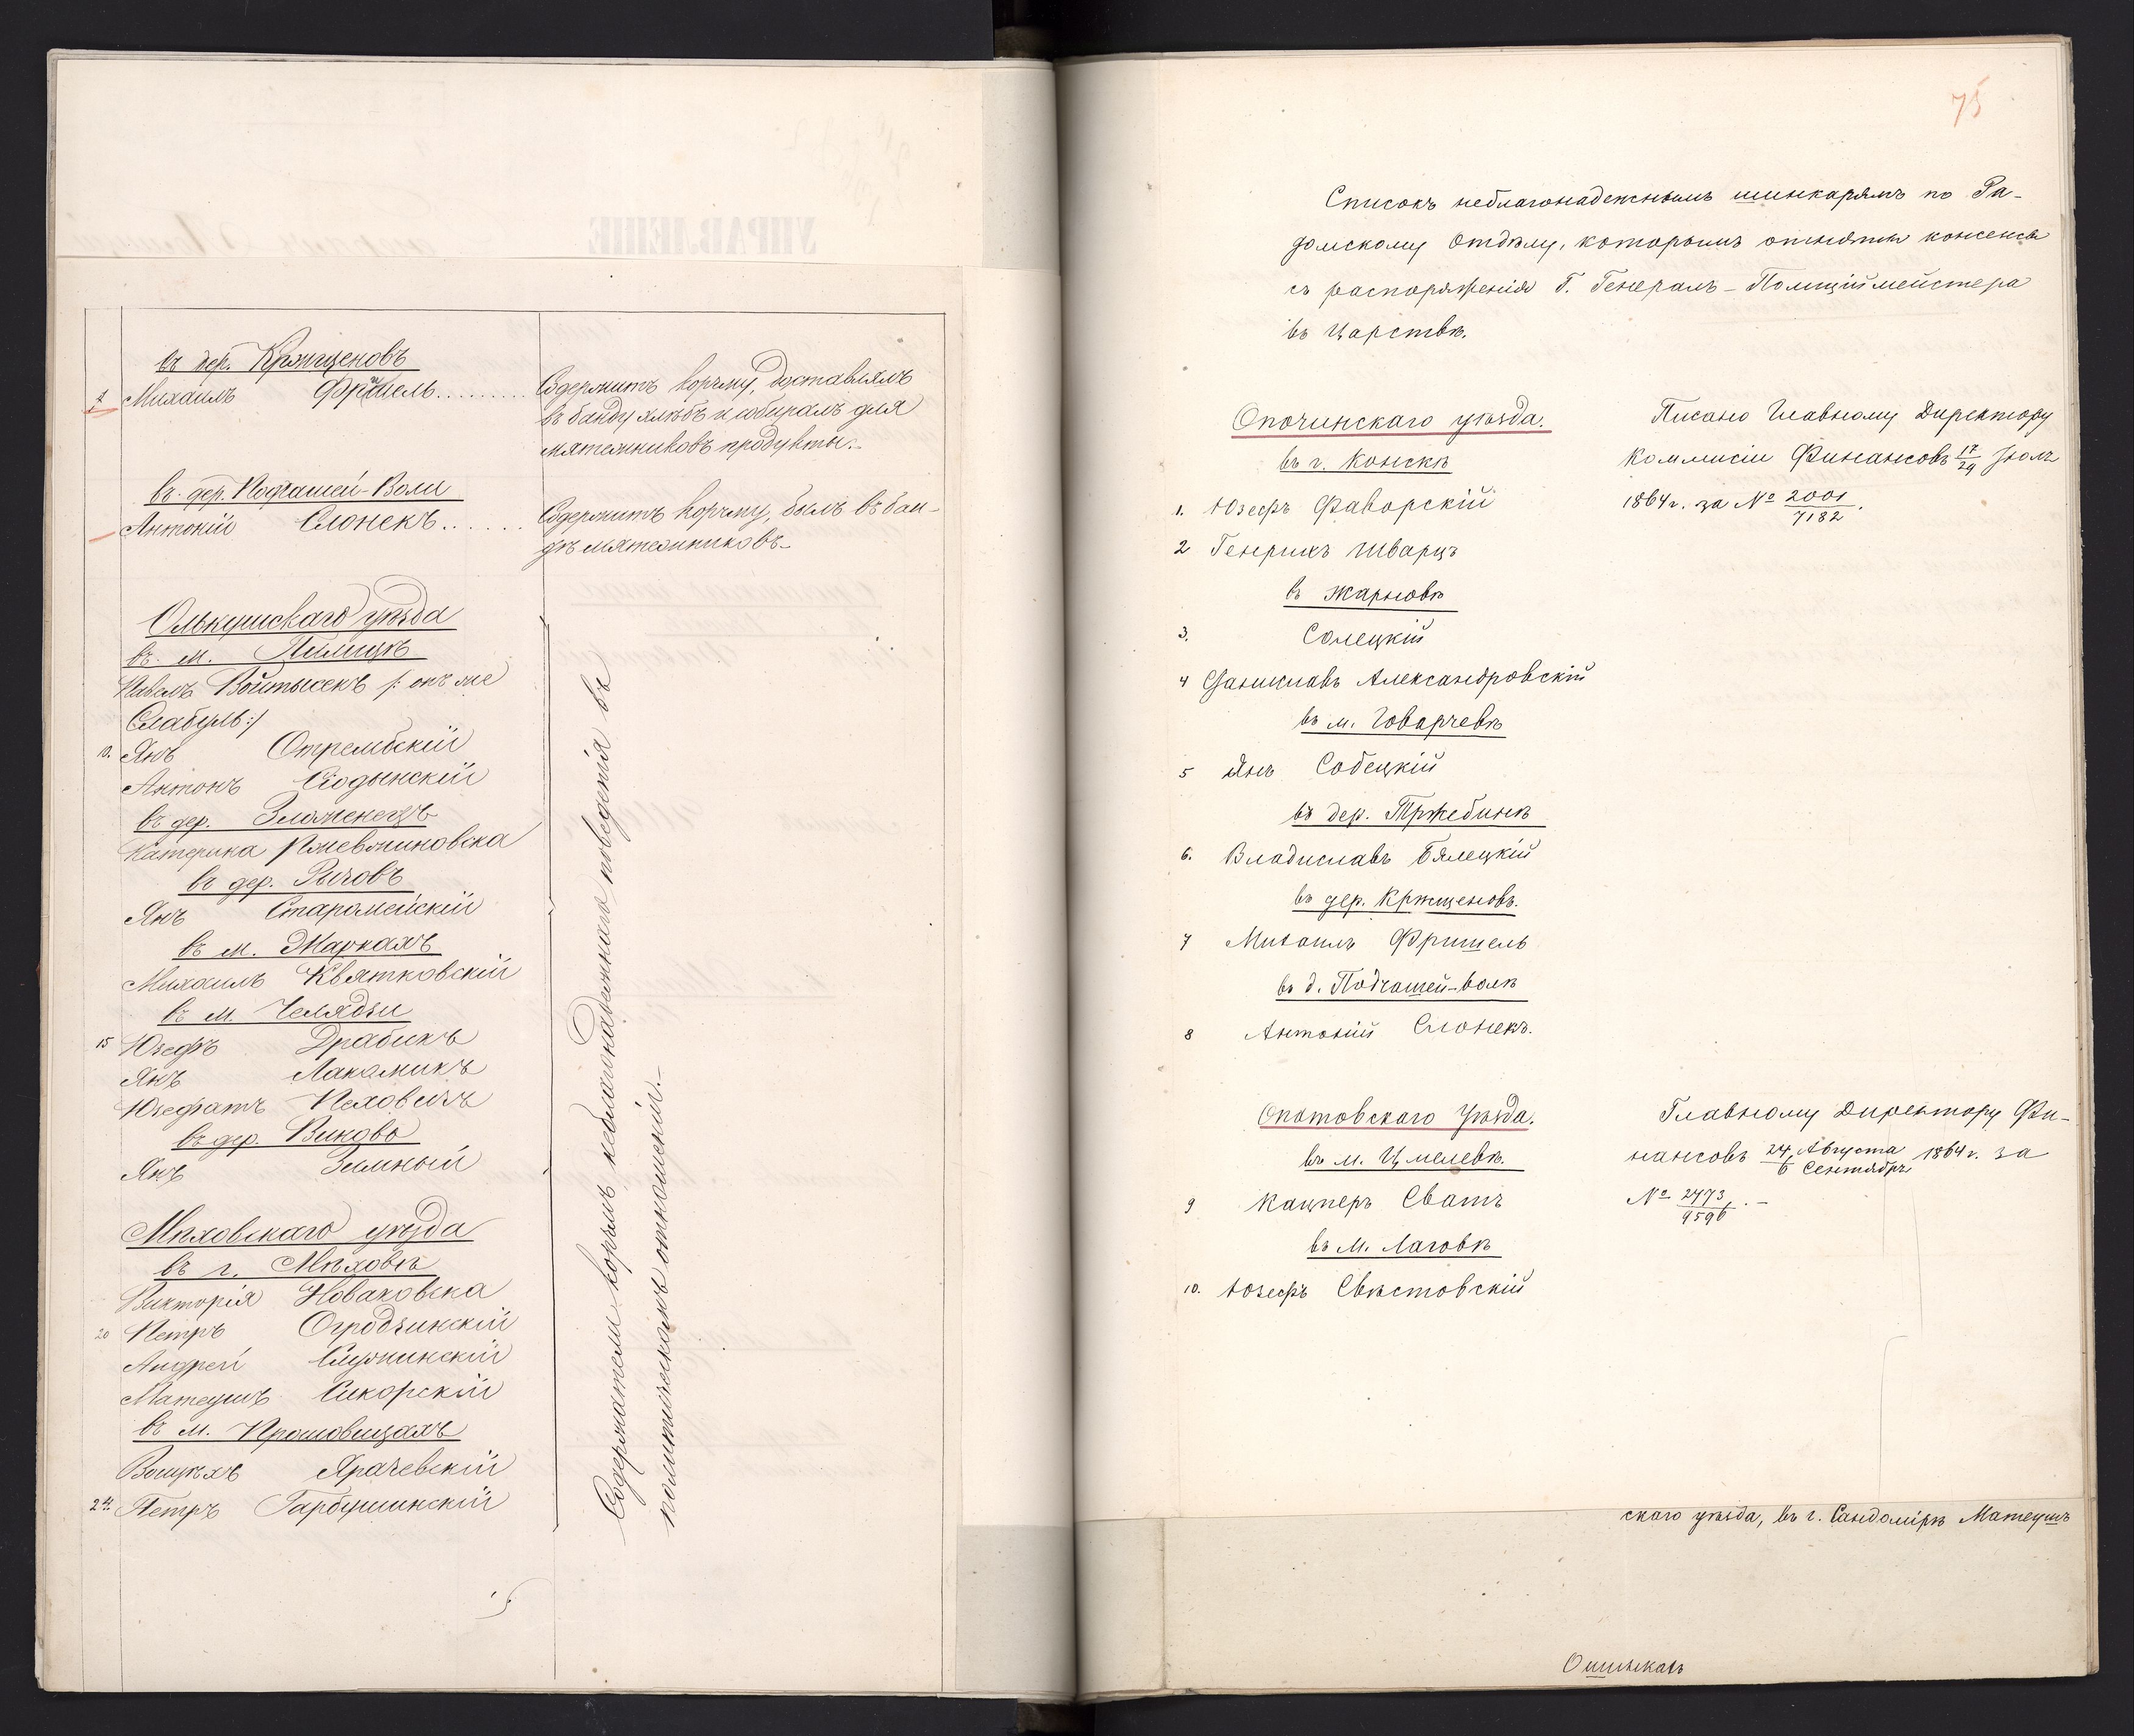 въ дер. Кржщеновъ
7 Михаилъ Фришель . . . . . . . . . Содержитъ корчму, доставлялъ
въ банду хлѣбъ и собиралъ для
мятежниковъ продукты.
въ дер. Подчашей-Воли
Антоній Слонекъ . . . . . . Содержитъ корчму, былъ въ бан-
дѣ мятежниковъ.
Олькушскаго уѣзда
въ м. Пилицѣ
Павелъ Войтысекъ /: онъ же
Слабуль :/
10. Янъ Отрембскій
Антонъ
въ дер. Зломенецъ
Катерина
въ дер. Рычовъ
Янъ Старомейскій
въ м. Жаркахъ
Михаилъ Квятковскій
въ м. Челядзи
15 Юзефъ Драбикъ
Янъ Лакомикъ
Юзефатъ Пеховичъ
въ дер.
Янъ Зимный
Мѣховскаго уѣзда
въ г. Мѣховѣ
Викторія Новаковска
20 Петръ Огродзинскій
Андрей Служинскій
Матеушъ Сикорскій
въ м. Прошовицахъ
Войцѣхъ Ярачевскій
24. Петръ Гарбушинскій
Содержатели корчмъ неблагонадежнаго поведенія въ
политическомъ отношеніи.
75
Списокъ неблагонадежнымъ шинкарямъ по Ра-
домскому Отдѣлу, которымъ отняты консенсы
съ распоряженія Г. Генералъ-Полицiймейстера
въ Царствѣ.
Опочинскаго уѣзда. Писано Главному Директору
въ г. Конскѣ Коммисіи Финансовъ 17/29 Іюля
1. Юзефъ Фаворскій 1864 г. за № 2001/7182.
2 Генрихъ Шварцъ
въ Жарновѣ
3. Солецкій
4 Станиславъ Александровскій
въ м. Говарчевѣ
5 Янъ Собецкій
въ дер. Тржебинѣ
6. Владиславъ Бялецкій
въ дер. Кржщеновъ.
7 Михаилъ Фришель
въ д. Подчашей-волѣ
8 Антоній Слонекъ.
Опатовскаго Уѣзда. Главному Директору Фи-
въ м. Цмелевѣ. нансовъ 24 Августа/6 Сентября 1864 г. за
9 Кацперъ Сватъ № 2473/9596. –
въ м. Лаговѣ
10. Юзефъ Свѣстовскій
скаго уѣзда, въ г. Сандомірѣ Матеушъ
О шинкахъ